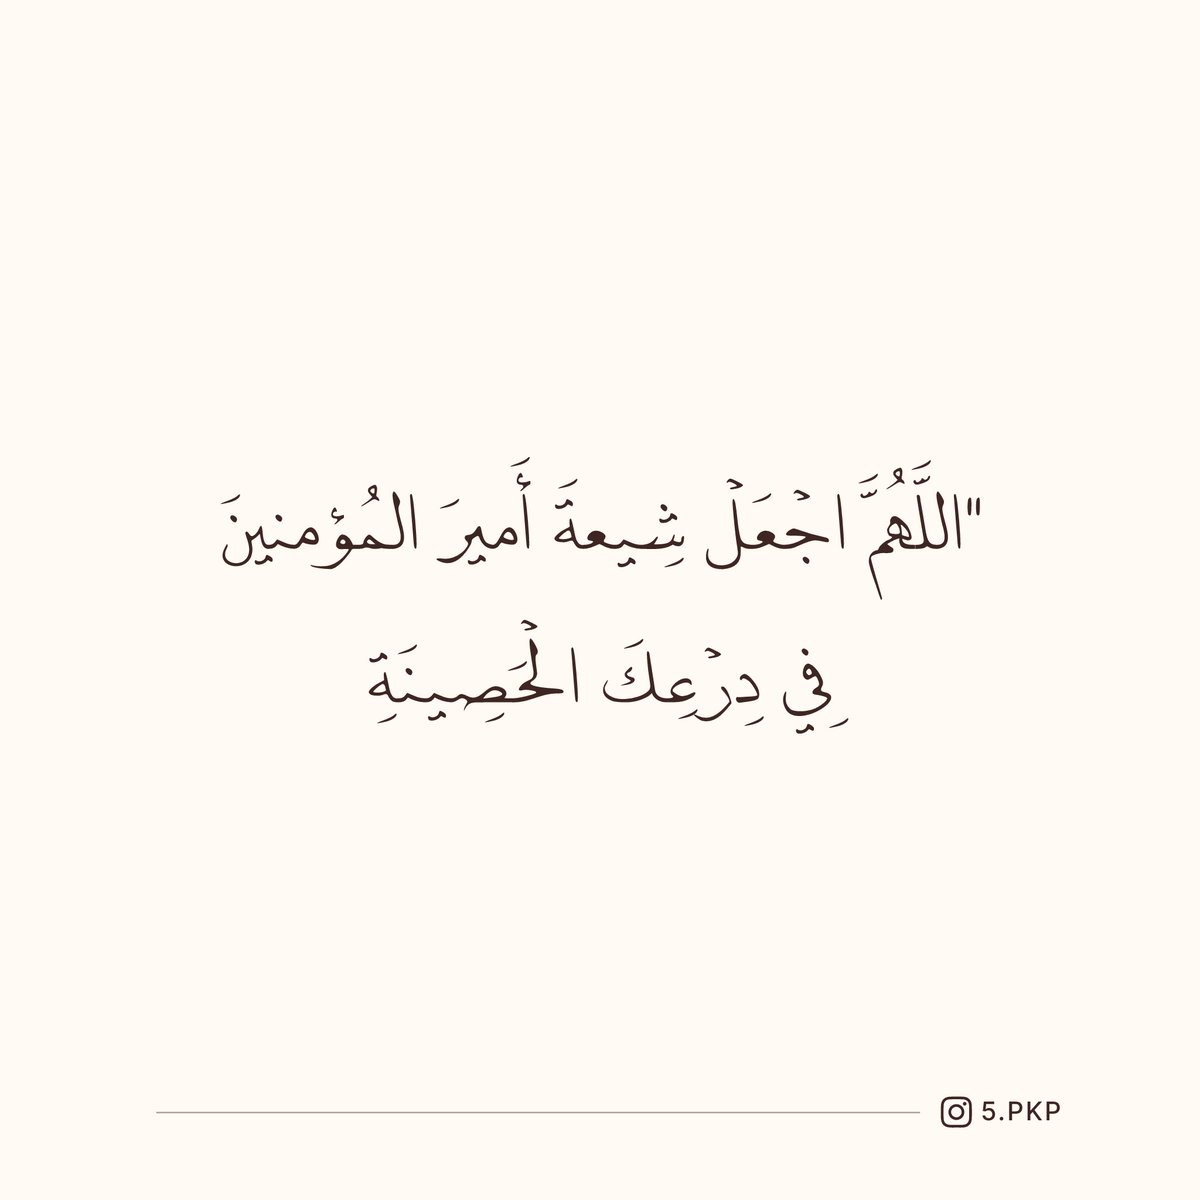 "اللَّهُمَّ اجْعَلْ شِيعةَ أَميرَ المُؤمنينَ
فِي دِرْعِكَ الْحَصِينَةِ
5.PKP